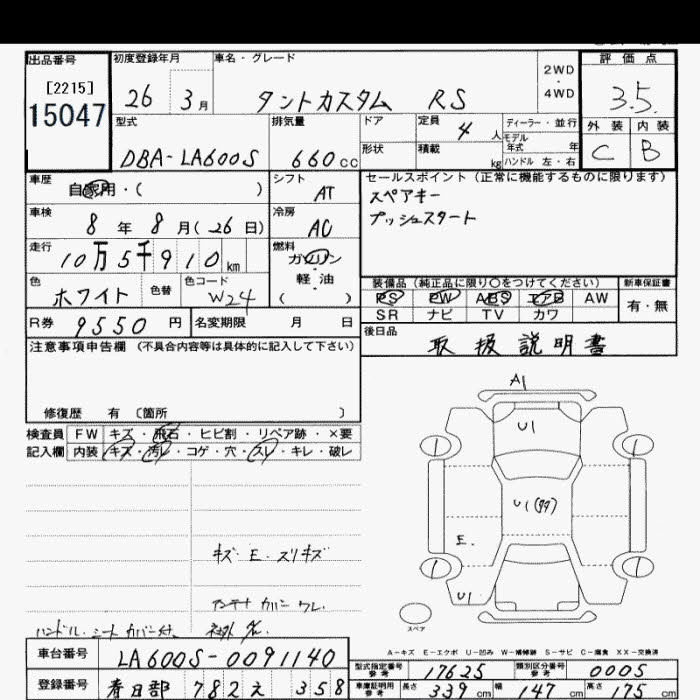 出品番号
[2215]
15047
初度登録年月
26 3月
車名・グレード
タントカスタム RS
2WD
・
4WD
評価点
3.5
外装 内装
C B
型式
DBA-LA600S
排気量
660cc
ドア
形状
定員 4 人
積載 kg
ディーラー・並行
モデル年式 年
ハンドル 左・右
車歴
自家用・( )
シフト
AT
車検
8年8月(26日)
冷房
AC
走行
10万5千910km
燃料
ガソリン
・
軽油
( )
色
ホワイト
色替
色コード
W24
R券 9550円
名変期限 月 日
セールスポイント (正常に機能するものに限ります)
スペアキー
プッシュスタート
装備品 (純正品に限り○をつけてください)
PS PW ABS エアB AW
SR ナビ TV カワ
新車保証書
有・無
後日品
取扱説明書
注意事項申告欄 (不具合内容等は具体的に記入して下さい)
修復歴 有 〔箇所 〕
検査員記入欄
FW キズ・飛石・ヒビ割・リペア跡・×要
内装 キズ・汚レ・コゲ・穴・スレ・キレ・破レ
キズ・E・スリキズ
アンテナ カバー ワレ
ハンドル・シートカバー付、社外
A1
U1
U1
E.
U1
スペア
A-キズ E-エクボ U-凹み W-補修跡 S-サビ C-腐食 XX-交換済
車台番号
LA600S-0091140
登録番号
春日部 782 え 358
型式指定番号
参考
17625
類別区分番号
参考
0005
車庫証明用
参考
長さ 339cm 幅 147cm 高さ 175cm